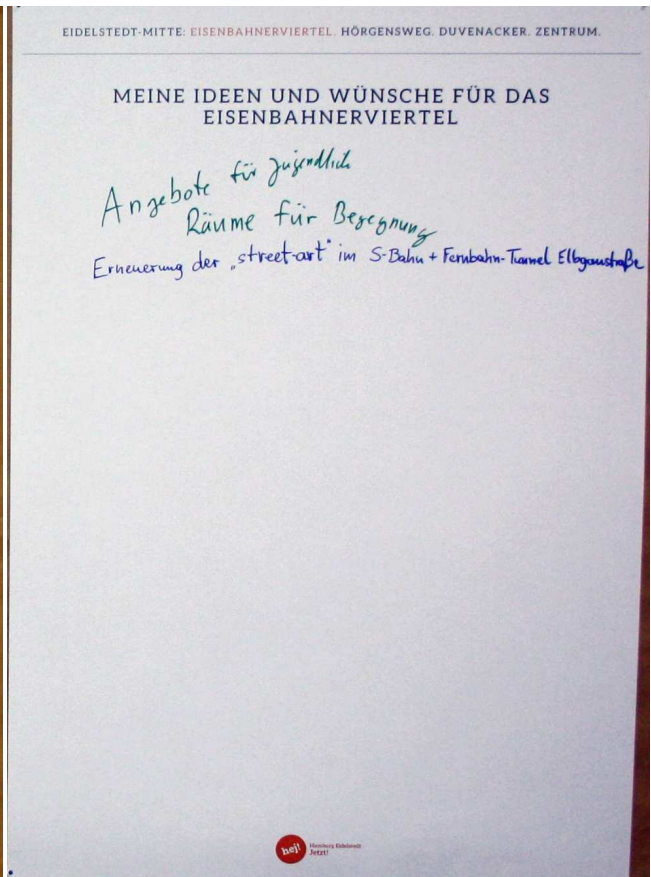 EIDELSTEDT-MITTE: EISENBAHNERVIERTEL. HÖRGENSWEG. DUVENACKER. ZENTRUM.
MEINE IDEEN UND WÜNSCHE FÜR DAS
EISENBAHNERVIERTEL
Angebote für Jugendlich
Räume für Begegnung
Erneuerung der „street-art" im S-Bahn + Fernbahn-Tunnel Elbgaustraße
hej! Hamburg Eidelstedt
Jetzt!